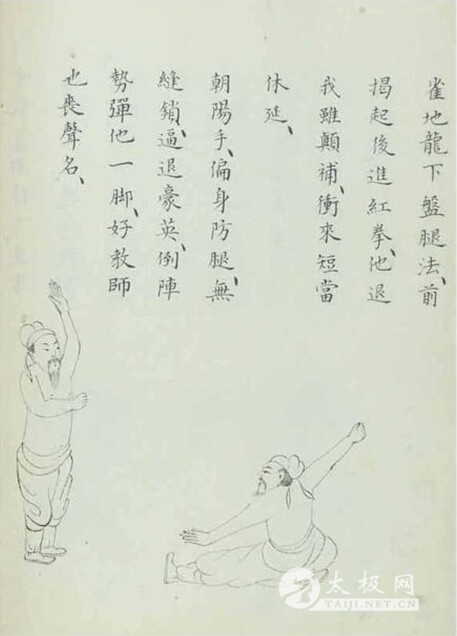 雀地龍下盤腿法、前
揭起後進紅拳、他退
我雖顛補、衝來短當
休延、
朝陽手、偏身防腿、無
縫鎖、逼退豪英、倒陣
勢彈他一脚、好教師
也喪聲名、
太极网
TAIJI.NET.CN